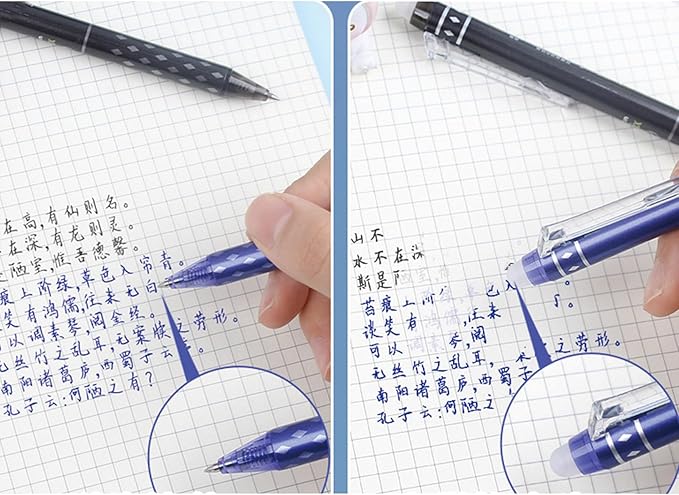 在高,有仙则名。
在深,有龙则灵。
陋室,惟吾德馨。
痕上阶绿,草色入帘青。
笑有鸿儒,往来无白
可以调素琴,阅金经。
无丝竹之乱耳,无案牍之劳形。
南阳诸葛庐,西蜀子云。
孔子云:何陋之有?
山不
水不在深
斯是陋室
苔痕上阶绿 色入
谈笑有鸿儒,往来
可以调素琴,阅
无丝竹之乱耳, 之劳形。
南阳诸葛庐,西蜀子
孔子云:何陋之